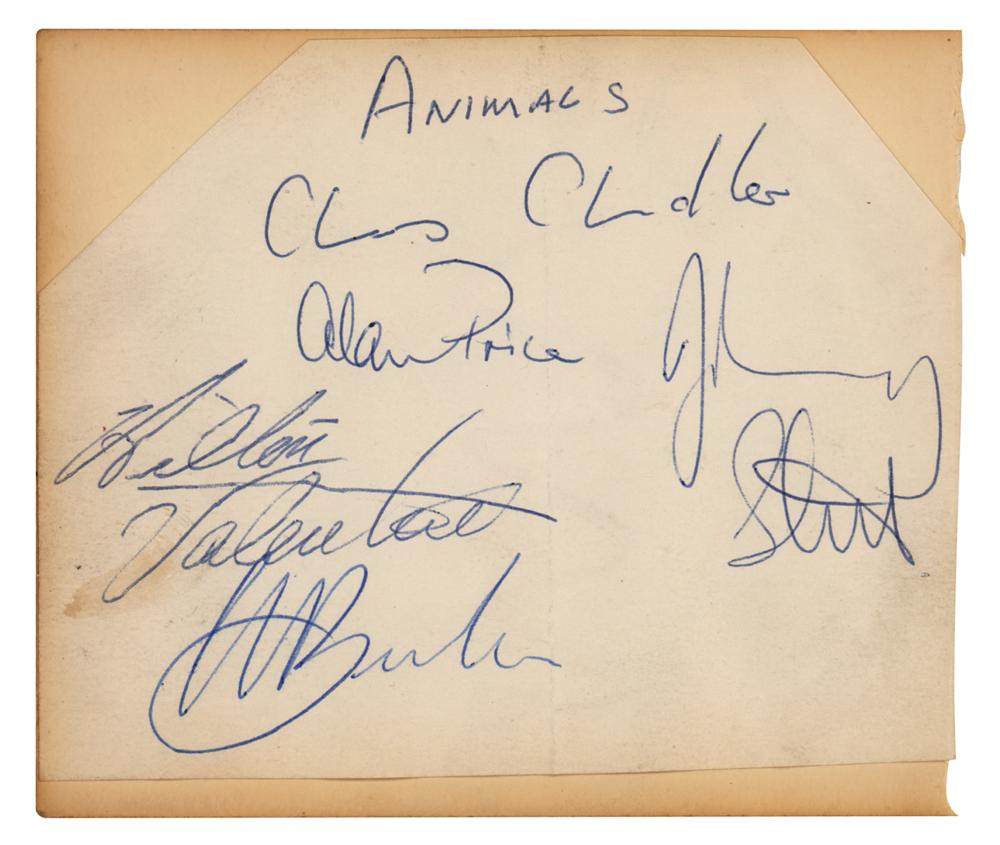 ANIMALS
Chas Chandler
Alan Price
Johnny
Steel
Hilton
Valentine
Burdon